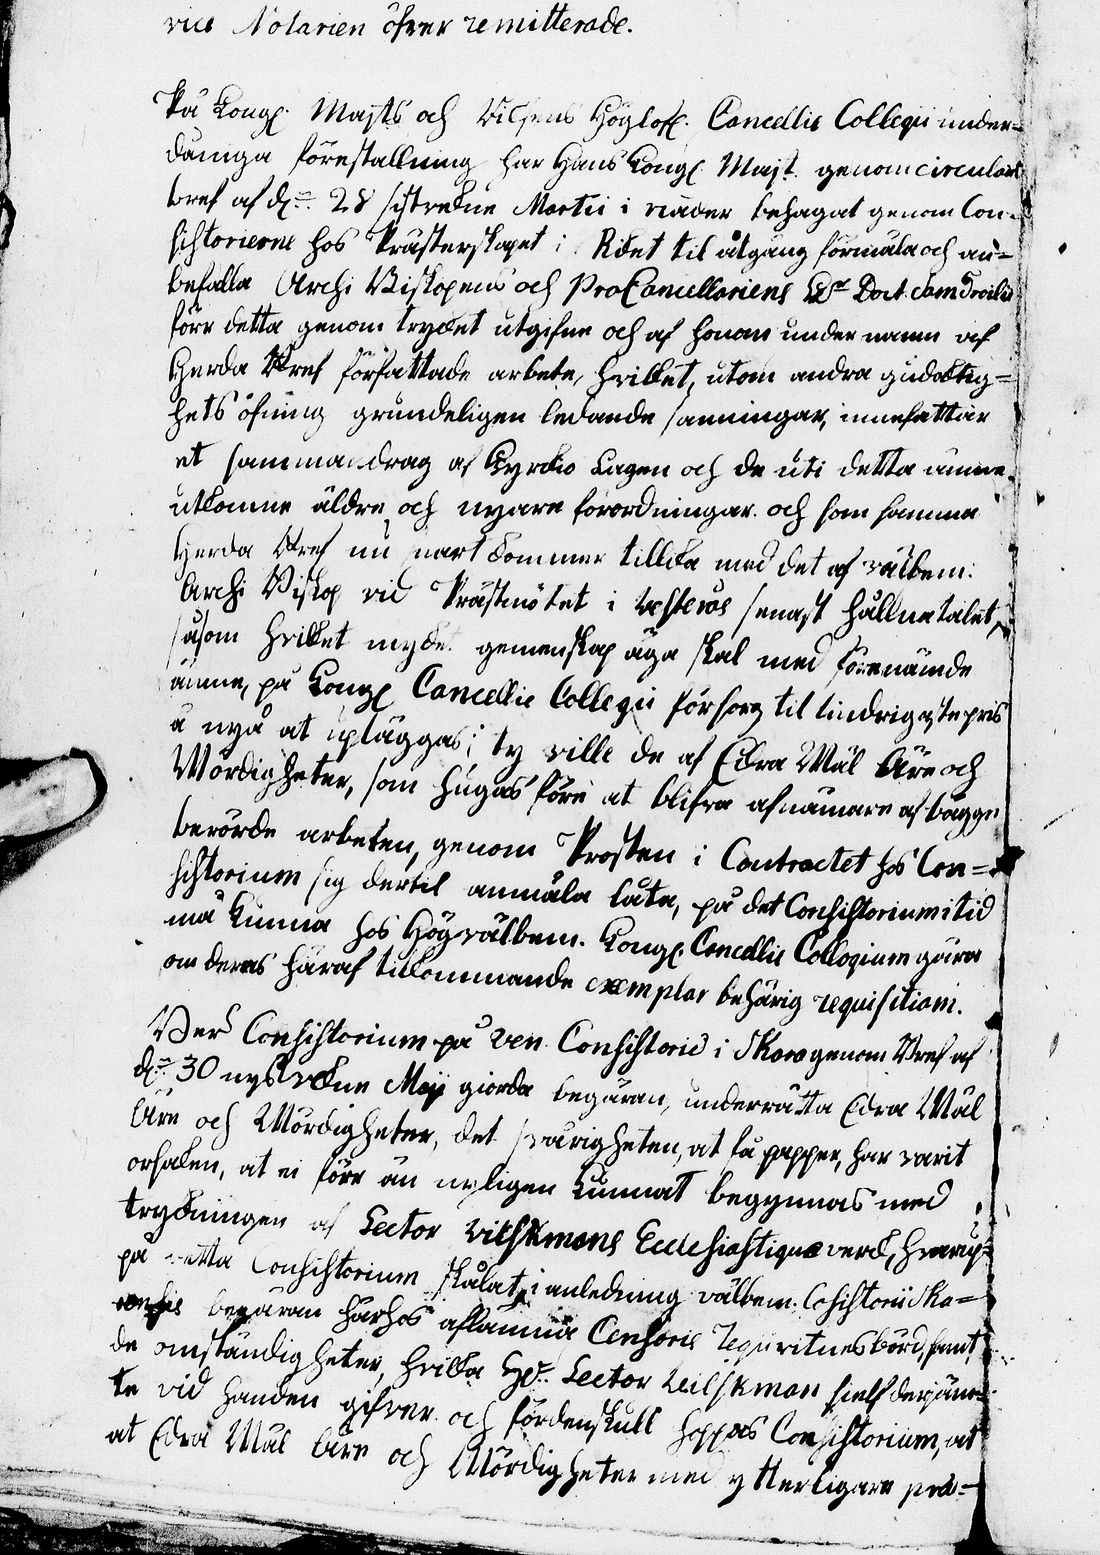 vice Notarien öfver remitterade.
På Kongl. Majts och Rikens Höglofl. Cancellie Collegii under-
dåniga föreställning har Hans Kongl. Majt. genom circulaire
bref af d. 28 sistledne Martii i nåder behagat genom Con-
sistorierne hos Prästerskapet i Riket til åtgäng förmäla och an-
befalla Archi Biskopens och ProCancellariens Hr Doct.
förr detta genom trycket utgifne och af honom under namn af
Herda Bref författade arbete, hvilket, utom andra gudaktig-
hets öfning grundeligen ledande sanningar, innefattar
et sammandrag af Kyrcko Lagen och de uti detta ämne
utkomne äldre och nyare förordningar. och som samma
Herda Bref nu snart kommer tillika med det af välbem:
Archi Biskop vid Prästmötet i Westerås senast hållne talet,
såsom hvilket mycket gemenskap äga skal med förenämde
ämne, på Kongl. Cancellie Collegii försorg til lindrigaste pris
å nyå at upläggas; ty ville de af Edra Wäl Ähre och
Wördigheter, som hugas före at blifva afnämare af bägge
berörde arbeten, genom Prosten i Contractet hos Con-
sistorium sig dertil anmäla låta, på det Consistorium i tid
må kunna hos Högvälbem. Kongl. Cancellie Collegium göra
om deras häraf tillkommande exemplar behörig requisition.
Ven Consistorium på Ven. Consistorii i Skara genom Bref af
d. 30 nystledne Maji giorda begäran, underrätta Edra Wäl
Äre och Wördigheter, det svårigheten, at få papper, har varit
orsaken, at ei förr än nyligen kunnat begynnas med
tryckningen af Lector Wilskmans Ecclesiastique verk, hvarup-
på detta Consistorium skolat, i anledning välbem. Cosistorii Ska-
rensis begäran härhos aflämna Censoris witnesbörd, samt
de omständigheter, hvilka Hr. Lector Wilskman sielf derjäm-
te vid handen gifver. och fördenskull hoppas Consistorium, at
at Edra Wäl Äre och Wördigheter med ytterligare præ-